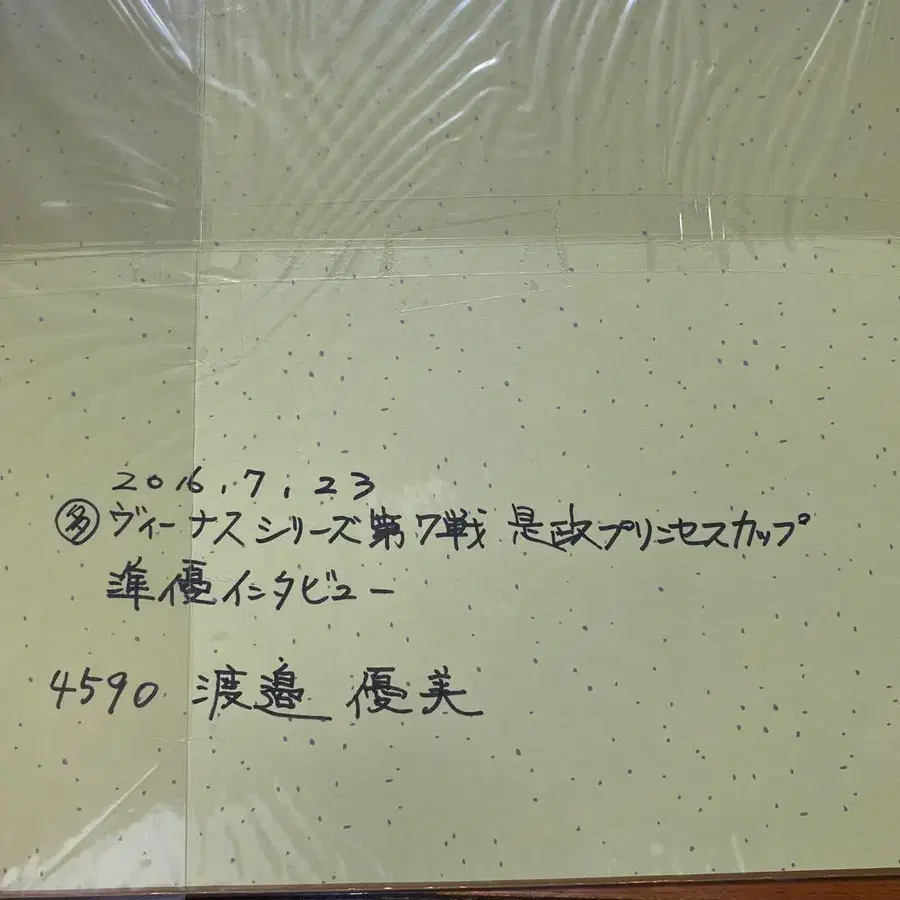 2016.7.23
㊥ヴィーナスシリーズ第7戦 是政プリンセスカップ
準優インタビュー
4590 渡邉 優美